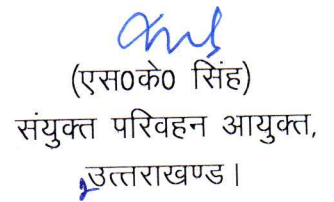 (एस0के0 सिंह)
संयुक्त परिवहन आयुक्त,
उत्तराखण्ड।